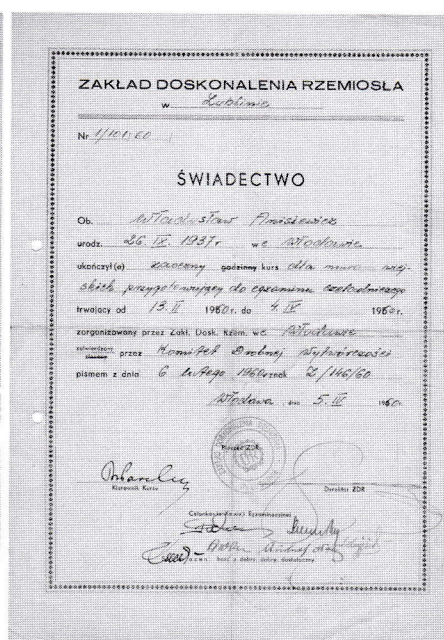 ZAKŁAD DOSKONALENIA RZEMIOSŁA
w Lublinie
Nr 1/101/60
ŚWIADECTWO
Ob. Władysław Aniśkiewicz
urodz. 26. IX. 1937 r we Włodawie
ukończył(a) zaoczny godzinny kurs dla mura wiej-
skich przygotowujący do egzaminu czeladniczego
trwający od 13. II 1960 r. do 4. IV 1960 r.
zorganizowany przez Zakł. Dosk. Rzem. we Włodawie
zatwierdzony przez Komitet Drobnej Wytwórczości
pismem z dnia 6 lutego 1960 znak Z/146/60
Włodawa dn 5. IV 1960
Pieczęć ZDR
Kierownik Kursu
Dyrektor ZDR
Członkowie Komisji Egzaminacyjnej